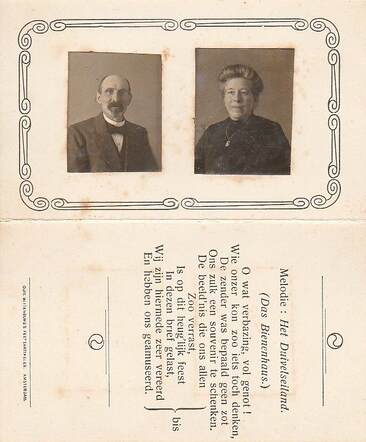 Melodie : Het Duivelseiland.
(Das Bienenhaus.)
O wat verbazing, vol genot!
Wie onzer kon zoo iets toch denken,
De zender was bepaald geen zot
Ons zulk een souvenir te schenken.
De beeld'nis die ons allen
Zoo verrast,
Is op dit heug'lijk feest
In dezen brief gelast,
Wij zijn hiermede zeer vereerd
En hebben ons geamuseerd.
bis